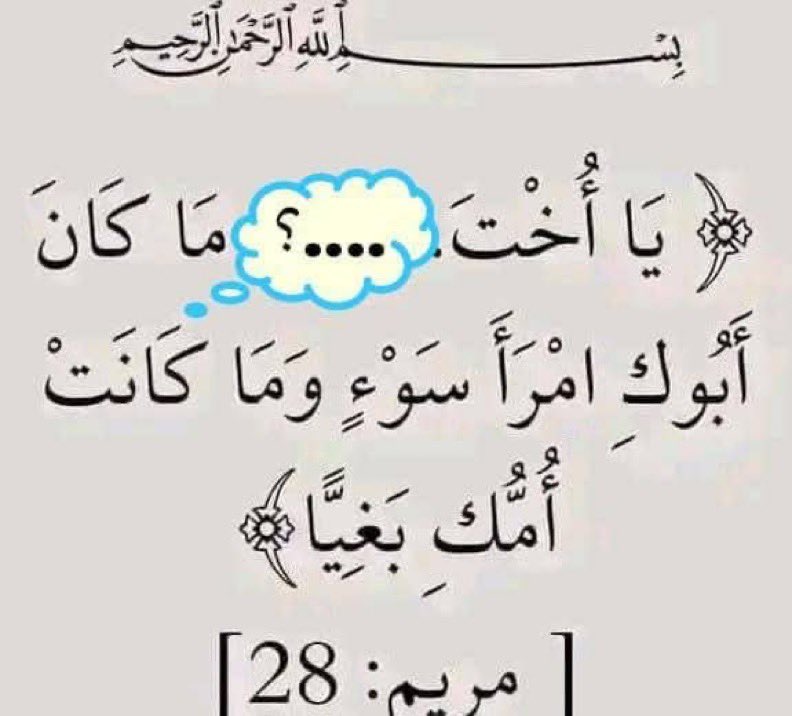 بِسْمِ اللَّهِ الرَّحْمَٰنِ الرَّحِيمِ
﴿ يَا أُخْتَ. ....؟ مَا كَانَ
أَبُوكِ امْرَأَ سَوْءٍ وَمَا كَانَتْ
أُمُّكِ بَغِيًّا ﴾
[ مريم: 28]